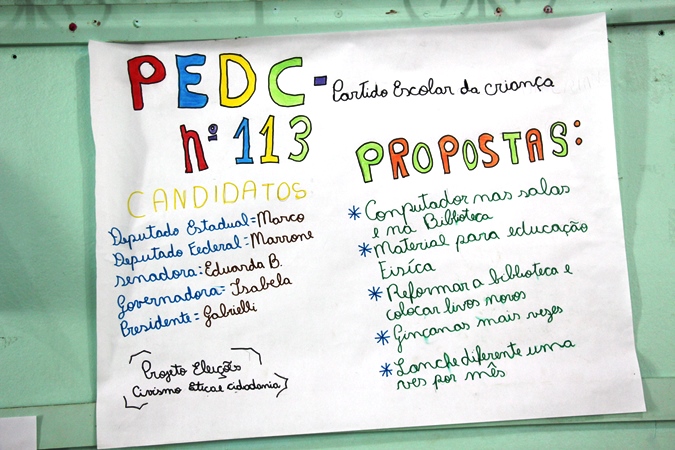 PEDC - Partido Escolar da criança
nº 113
CANDIDATOS
Deputado Estadual = Marco
Deputado Federal = Marrone
senadora: Eduarda B.
Governadora = Isabela
Presidente = Gabrielli
Projeto Eleições
Civismo ética e cidadania
PROPOSTAS:
* Computador nas salas
e na Biblioteca
* Material para educação
Fisíca
* Reformar a biblioteca e
colocar livros novos
* Ginçanas mais vezes
* Lanche diferente uma
ves por mês